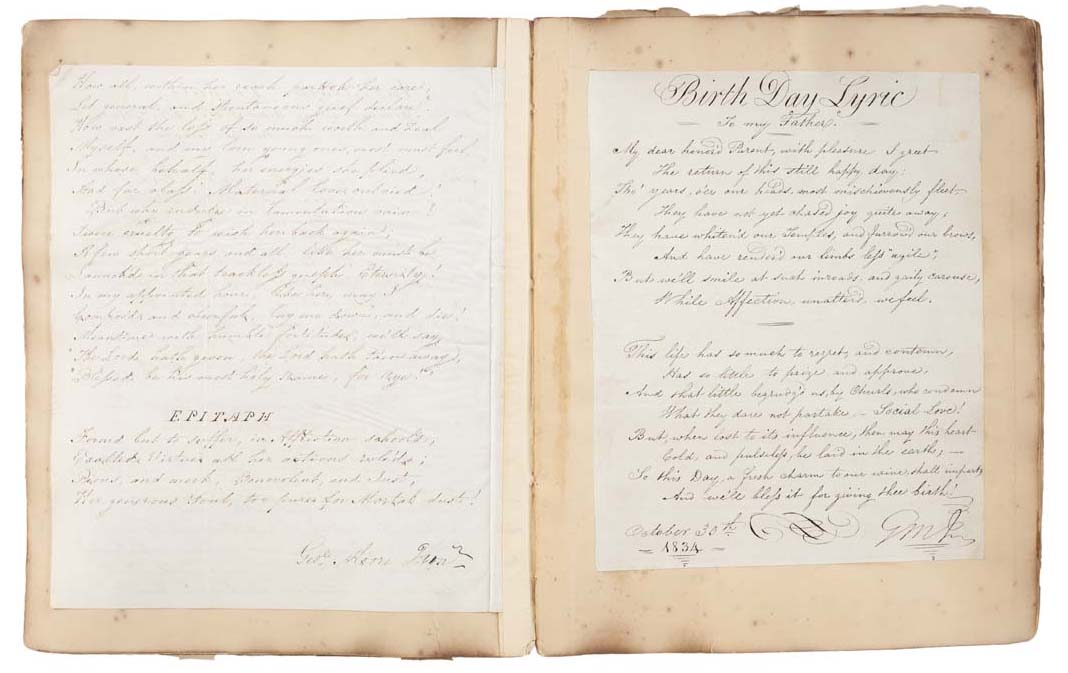 How all, within her reach partook her care;
Let general, and spontaneous grief declare!
How vast the loss of so much worth and Zeal
Myself, and our Seven young ones, most must feel
In whose behalf, her energies she plied,
And far
But why indulge in lamentation vain!
'Twere cruelty to wish her back again;
A few short years, and all like her must be
Launch'd in that trackless Eternity!
In my appointed hour, like her, may I
Compos'd, and cheerful, lay me down, and die!
Meantime with humble fortitude, we'll say
"The Lord hath given, the Lord hath ta'en away,
"Blessed be his most holy Name, for Aye!"
EPITAPH
Formed but to suffer, in Affliction school'd,
Exalted Virtue all her actions rul'd;
Pious, and meek, Benevolent, and Just,
Her generous Soul, too pure for Mortal dust!
Geo.
Birth Day Lyric
To my Father.
My dear honor'd Parent, with pleasure I greet
The return of this still happy day:
Tho' years, o'er our heads most mischievously fleet
They have not yet chased joy quite away;
They have whiten'd our Temples, and furrow'd our brows,
And have render'd our limbs less "agile";
But we'll smile at such inroads, and gaily carouse,
While Affection, unalter'd, we feel.
This life has so much to regret, and contemn,
Has so little to prize, and approve,
And that little begrudg'd us, by Churls, who condemn
What they dare not partake — Social Love!
But, when lost to its influence, then may this heart
Cold, and pulseless, be laid in the earth; —
So this Day, a fresh charm to our wine, shall impart,
And we'll bless it for giving thee birth!
October 30th GM Jr
1834